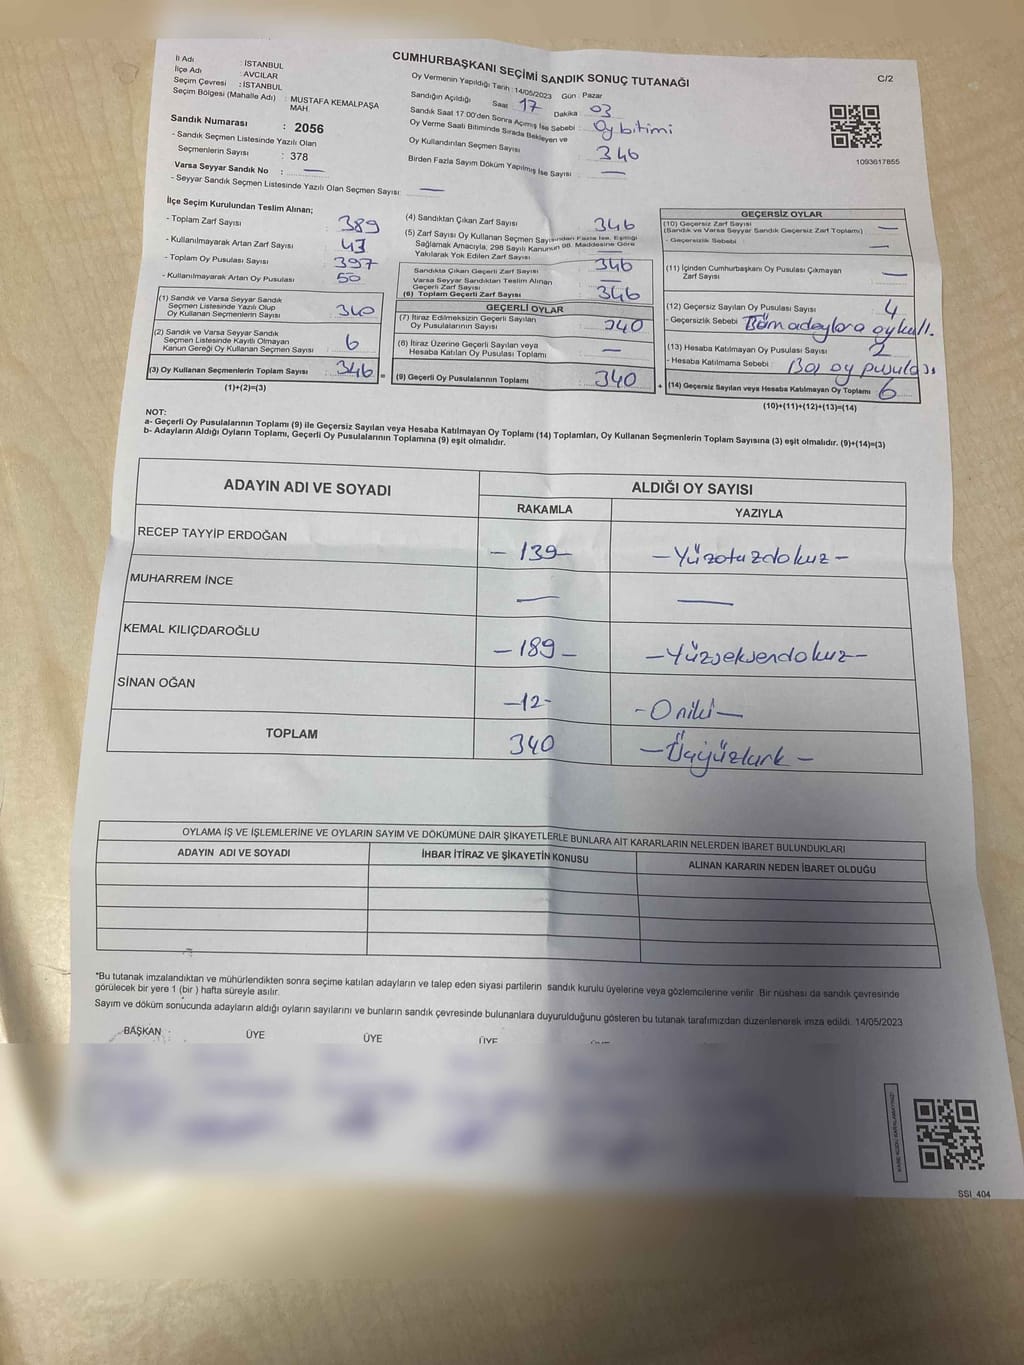 CUMHURBAŞKANI SEÇİMİ SANDIK SONUÇ TUTANAĞI
C/2
İl Adı : İSTANBUL
İlçe Adı : AVCILAR
Seçim Çevresi : İSTANBUL
Seçim Bölgesi (Mahalle Adı) : MUSTAFA KEMALPAŞA
MAH.
Sandık Numarası : 2056
- Sandık Seçmen Listesinde Yazılı Olan
Seçmenlerin Sayısı : 378
Varsa Seyyar Sandık No : —
- Seyyar Sandık Seçmen Listesinde Yazılı Olan Seçmen Sayısı: —
Oy Vermenin Yapıldığı Tarih : 14/05/2023 Gün : Pazar
Sandığın Açıldığı Saat 17 Dakika 03
Sandık Saat 17.00'den Sonra Açılmış İse Sebebi : Oy bitimi
Oy Verme Saati Bitiminde Sırada Bekleyen ve
Oy Kullandırılan Seçmen Sayısı 346
Birden Fazla Sayım Döküm Yapılmış İse Sayısı —
1093617855
İlçe Seçim Kurulundan Teslim Alınan;
- Toplam Zarf Sayısı 389
- Kullanılmayarak Artan Zarf Sayısı 43
- Toplam Oy Pusulası Sayısı 397
- Kullanılmayarak Artan Oy Pusulası 50
(1) Sandık ve Varsa Seyyar Sandık
Seçmen Listesinde Yazılı Olup
Oy Kullanan Seçmenlerin Sayısı 340
(2) Sandık ve Varsa Seyyar Sandık
Seçmen Listesinde Kayıtlı Olmayan
Kanun Gereği Oy Kullanan Seçmen Sayısı 6
(3) Oy Kullanan Seçmenlerin Toplam Sayısı 346 =
(1)+(2)=(3)
(4) Sandıktan Çıkan Zarf Sayısı 346
(5) Zarf Sayısı Oy Kullanan Seçmen Sayısından Fazla İse, Eşitliği
Sağlamak Amacıyla, 298 Sayılı Kanunun 98. Maddesine Göre
Yakılarak Yok Edilen Zarf Sayısı —
Sandıkta Çıkan Geçerli Zarf Sayısı 346
Varsa Seyyar Sandıktan Teslim Alınan
Geçerli Zarf Sayısı —
(6) Toplam Geçerli Zarf Sayısı 346
GEÇERLİ OYLAR
(7) İtiraz Edilmeksizin Geçerli Sayılan
Oy Pusulalarının Sayısı 340
(8) İtiraz Üzerine Geçerli Sayılan veya
Hesaba Katılan Oy Pusulası Toplamı —
(9) Geçerli Oy Pusulalarının Toplamı 340 +
GEÇERSİZ OYLAR
(10) Geçersiz Zarf Sayısı
(Sandık ve Varsa Seyyar Sandık Geçersiz Zarf Toplamı) —
- Geçersizlik Sebebi —
(11) İçinden Cumhurbaşkanı Oy Pusulası Çıkmayan
Zarf Sayısı —
(12) Geçersiz Sayılan Oy Pusulası Sayısı 4
- Geçersizlik Sebebi Tüm adaylara oy kull.
(13) Hesaba Katılmayan Oy Pusulası Sayısı 2
- Hesaba Katılmama Sebebi Boş oy pusulası
(14) Geçersiz Sayılan veya Hesaba Katılmayan Oy Toplamı 6
(10)+(11)+(12)+(13)=(14)
NOT:
a- Geçerli Oy Pusulasının Toplamı (9) ile Geçersiz Sayılan veya Hesaba Katılmayan Oy Toplamı (14) Toplamları, Oy Kullanan Seçmenlerin Toplam Sayısına (3) eşit olmalıdır. (9)+(14)=(3)
b- Adayların Aldığı Oyların Toplamı, Geçerli Oy Pusulalarının Toplamına (9) eşit olmalıdır.
ADAYIN ADI VE SOYADI ALDIĞI OY SAYISI
RAKAMLA YAZIYLA
RECEP TAYYİP ERDOĞAN - 139 - - Yüzotuzdokuz -
MUHARREM İNCE — —
KEMAL KILIÇDAROĞLU - 189 - - Yüzseksendokuz -
SİNAN OĞAN - 12 - - Oniki -
TOPLAM 340 - Üçyüzkırk -
OYLAMA İŞ VE İŞLEMLERİNE VE OYLARIN SAYIM VE DÖKÜMÜNE DAİR ŞİKAYETLERLE BUNLARA AİT KARARLARIN NELERDEN İBARET BULUNDUKLARI
ADAYIN ADI VE SOYADI İHBAR İTİRAZ VE ŞİKAYETİN KONUSU ALINAN KARARIN NEDEN İBARET OLDUĞU
*Bu tutanak imzalandıktan ve mühürlendikten sonra seçime katılan adayların ve talep eden siyasi partilerin sandık kurulu üyelerine veya gözlemcilerine verilir. Bir nüshası da sandık çevresinde
görülecek bir yere 1 (bir ) hafta süreyle asılır.
Sayım ve döküm sonucunda adayların aldığı oyların sayılarını ve bunların sandık çevresinde bulunanlara duyurulduğunu gösteren bu tutanak tarafımızdan düzenlenerek imza edildi. 14/05/2023
BAŞKAN ÜYE ÜYE ÜYE
SSI_404